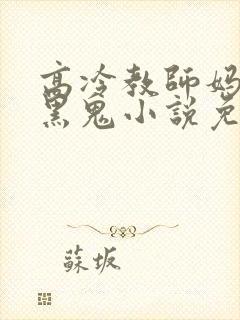 高冷教師妈
黑鬼小説免
蘇坂